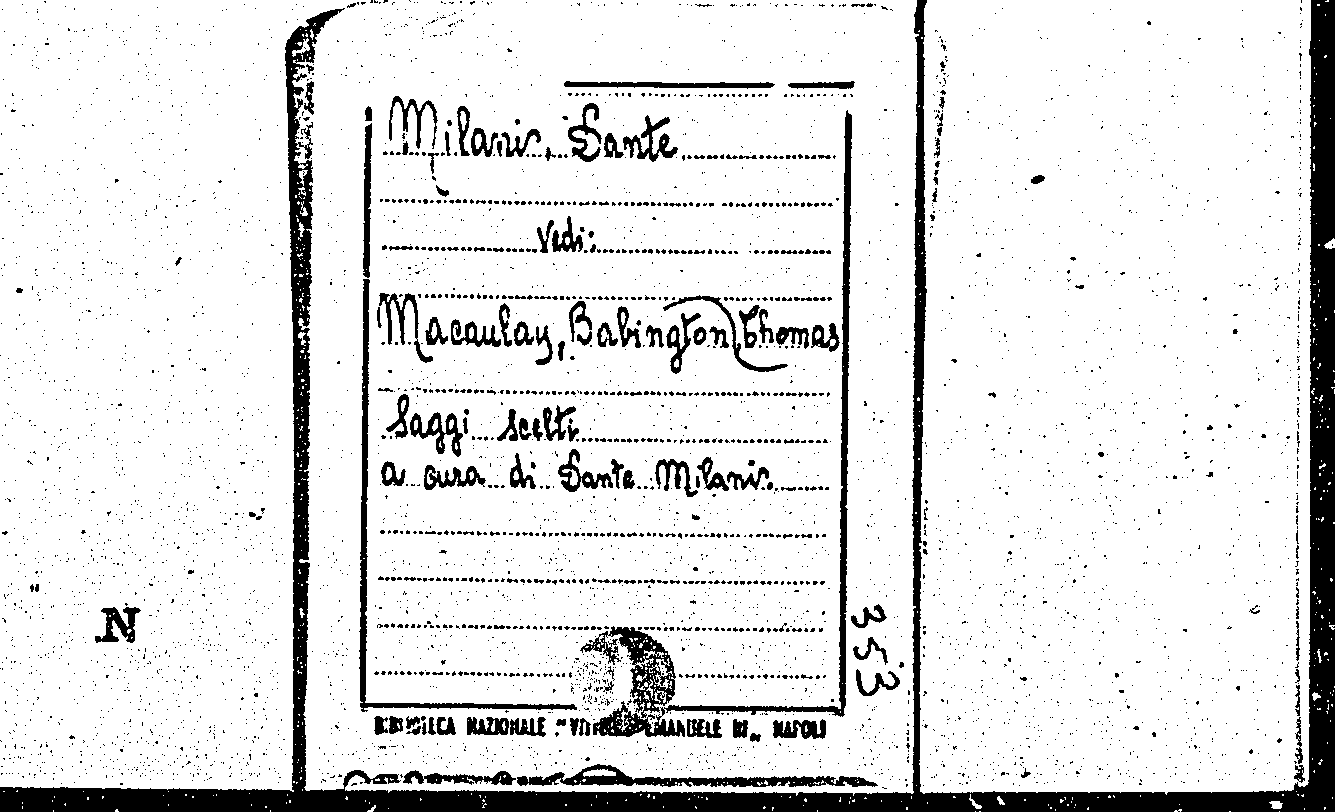 Milani, Sante
Vedi:
Macaulay, Babington Thomas
Saggi scelti
a cura di Sante Milani.
353
N
BIBLIOTECA NAZIONALE "VITTORIO EMANUELE III" NAPOLI